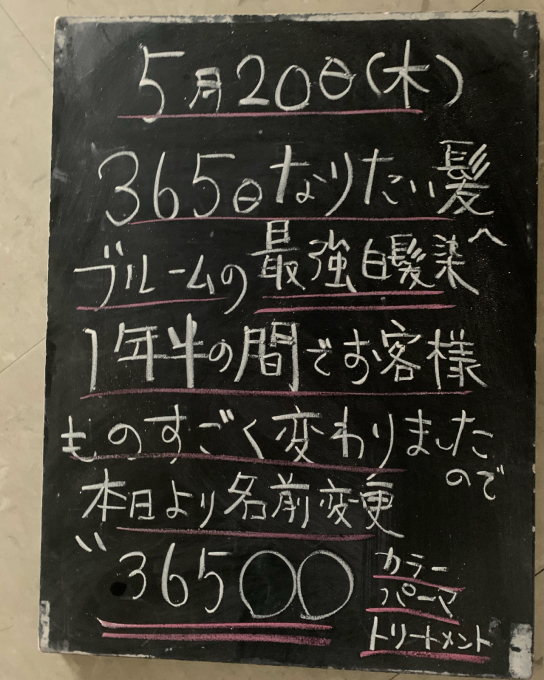 5月20日(木)
365日なりたい髪へ
ブルームの最強白髪染
1年半の間でお客様
ものすごく変わりました
ので
本日より名前変更
"365〇〇
カラー
パーマ
トリートメント